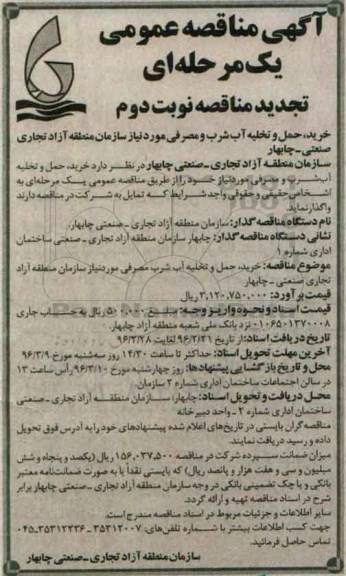 آگهی مناقصه عمومی
یک مرحله‌ای
تجدید مناقصه نوبت دوم
خرید، حمل و تخلیه آب شرب و مصرفی مورد نیاز سازمان منطقه آزاد تجاری
صنعتی ـ چابهار
سازمان منطقه آزاد تجاری ـ صنعتی چابهار در نظر دارد خرید، حمل و تخلیه
آب شرب و مصرفی مورد نیاز خود را از طریق مناقصه عمومی یک مرحله‌ای به
اشخاص حقیقی و حقوقی واجد شرایط که تمایل به شرکت در مناقصه دارند
واگذار نماید.
نام دستگاه مناقصه گذار: سازمان منطقه آزاد تجاری ـ صنعتی چابهار.
نشانی دستگاه مناقصه گذار: چابهار سازمان منطقه آزاد تجاری ـ صنعتی ساختمان
اداری شماره ۱
موضوع مناقصه: خرید، حمل و تخلیه آب شرب مصرفی موردنیاز سازمان منطقه آزاد
تجاری صنعتی ـ چابهار
قیمت برآورد: ۳,۱۲۰,۷۵۰,۰۰۰ ریال
قیمت اسناد و نحوه واریز وجه: مبلغ ۵۰۰,۰۰۰ ریال به حساب جاری
۰۱۰۶۵۰۱۳۷۰۰۰۸ نزد بانک ملی شعبه منطقه آزاد چابهار.
تاریخ دریافت اسناد: از تاریخ ۹۶/۲/۳۱ لغایت ۹۶/۲/۲۸
آخرین مهلت تحویل اسناد: حداکثر تا ساعت ۱۴/۳۰ روز سه‌شنبه مورخ ۹۶/۳/۹
محل و تاریخ بازگشایی پیشنهادها: روز چهارشنبه مورخ ۹۶/۳/۱۰ رأس ساعت ۱۳
در سالن اجتماعات ساختمان اداری شماره ۲ سازمان
محل دریافت و تحویل اسناد: چابهار، سازمان منطقه آزاد تجاری ـ صنعتی
ساختمان اداری شماره ۲ ـ واحد دبیرخانه
مناقصه گران بایستی در تاریخ‌های اعلام شده پیشنهادهای خود را به آدرس فوق تحویل
داده و رسید دریافت نمایند.
میزان ضمانت سپرده شرکت در مناقصه ۱۵۶,۰۳۷,۵۰۰ ریال (یکصد و پنجاه و شش
میلیون و سی و هفت هزار و پانصد ریال) که بایستی نقداً یا به صورت ضمانت‌نامه معتبر
بانکی و یا چک تضمینی بانکی در وجه سازمان منطقه آزاد تجاری ـ صنعتی چابهار برابر
شرح در اسناد مناقصه تهیه و ارائه گردد.
سایر اطلاعات و جزئیات مربوط در اسناد مناقصه مندرج است.
جهت کسب اطلاعات بیشتر با شماره تلفن‌های: ۳۵۳۱۲۰۰۷ ـ ۳۵۳۱۲۳۳۶ـ۰۵۴
تماس حاصل فرمائید.
سازمان منطقه آزاد تجاری ـ صنعتی چابهار